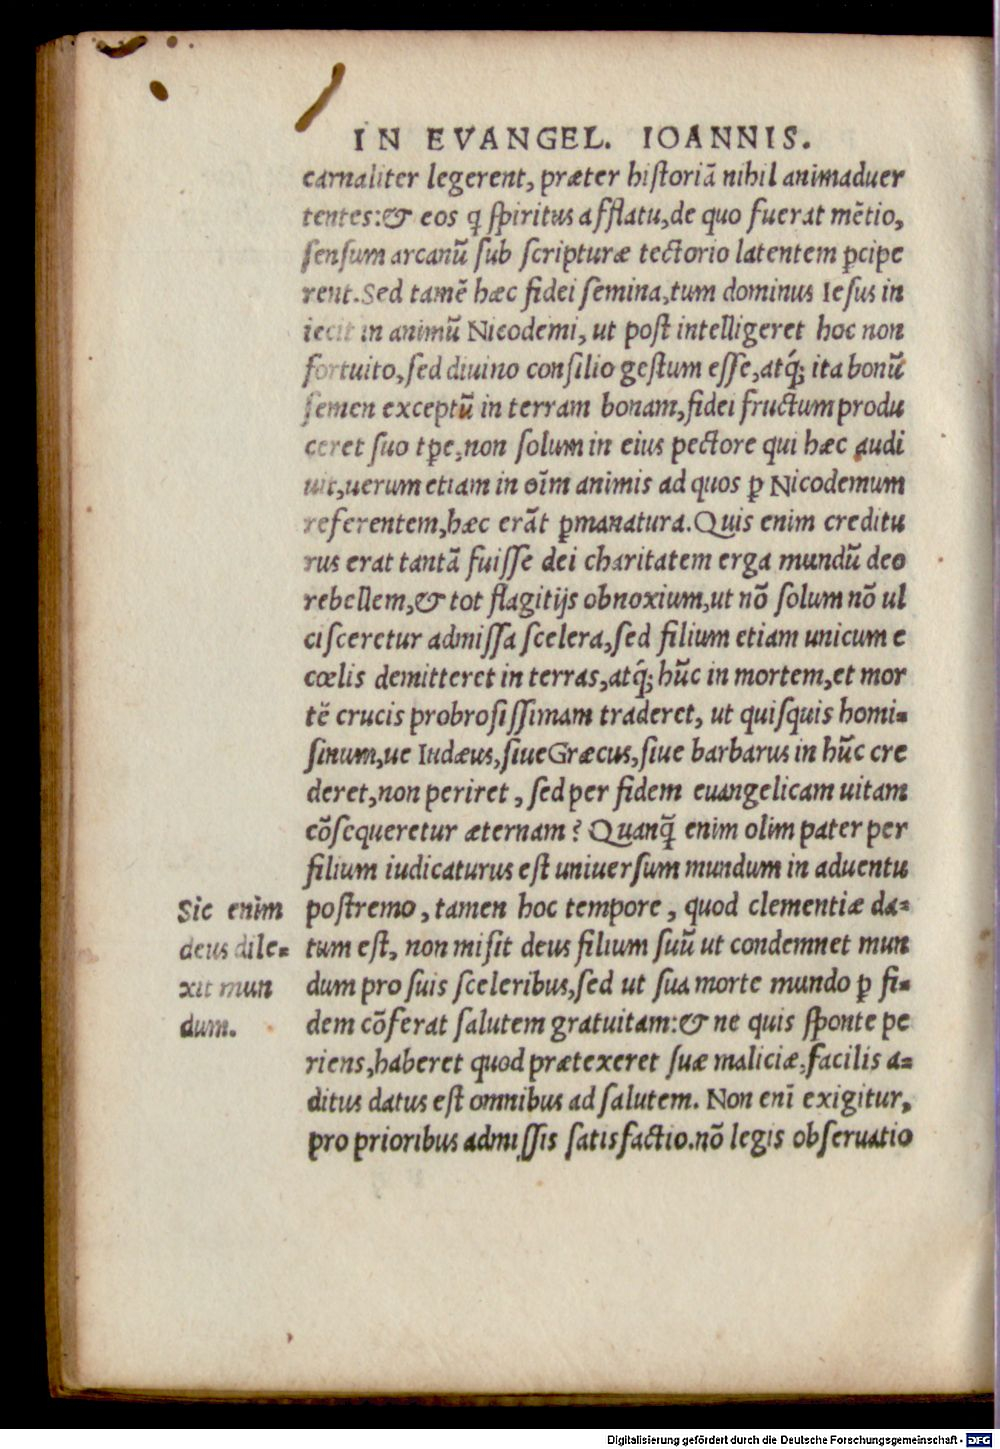 IN EVANGEL. IOANNIS.
carnaliter legerent, præter historiā nihil animaduer
tentes:& eos q̄ spiritus afflatu,de quo fuerat mētio,
sensum arcanū sub scripturæ tectorio latentem ꝑcipe
rent.Sed tamē hæc fidei semina,tum dominus Iesus in
iecit in animū Nicodemi, ut post intelligeret hoc non
fortuito,sed diuino consilio gestum esse,atq́; ita bonū
semen exceptū in terram bonam,fidei fructum produ
ceret suo tꝑe,non solum in eius pectore qui hæc audi
uit,uerum etiam in oīm animis ad quos ꝑ Nicodemum
referentem,hæc erāt ꝑmanatura.Quis enim creditu
rus erat tantā fuisse dei charitatem erga mundū deo
rebellem,& tot flagitijs obnoxium,ut nō solum nō ul
cisceretur admissa scelera,sed filium etiam unicum e
cœlis demitteret in terras,atq́; hūc in mortem,et mor
tē crucis probrosissimam traderet, ut quisquis homi=
sinum,ue Iudæus,siue Græcus,siue barbarus in hūc cre
deret,non periret , sed per fidem euangelicam uitam
cōsequeretur æternam? Quanq̄ enim olim pater per
filium iudicaturus est uniuersum mundum in aduentu
postremo , tamen hoc tempore , quod clementiæ da=
tum est, non misit deus filium suū ut condemnet mun
dum pro suis sceleribus,sed ut sua morte mundo ꝑ fi=
dem cōferat salutem gratuitam:& ne quis sponte pe
riens,haberet quod prætexeret suæ maliciæ,facilis a=
ditus datus est omnibus ad salutem. Non enī exigitur,
pro prioribus admissis satisfactio.nō legis obseruatio
Sic enim
deus dile=
xit mun
dum.
Digitalisierung gefördert durch die Deutsche Forschungsgemeinschaft - DFG